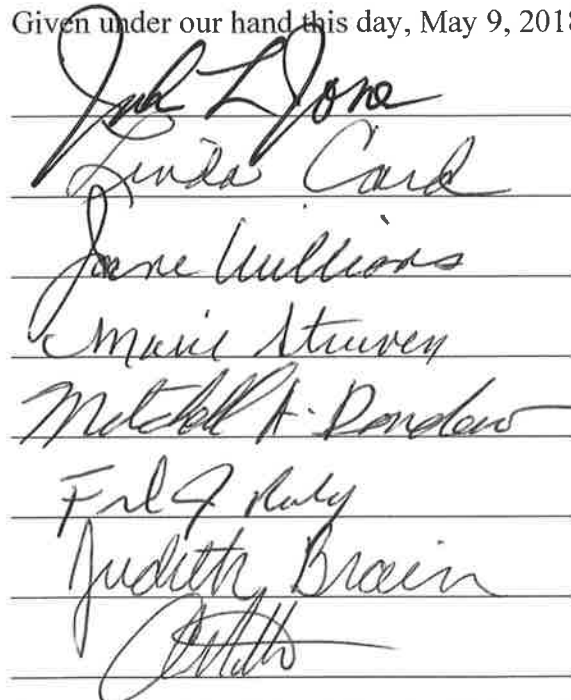 Given under our hand this day, May 9, 2018
L Jone
Linda Card
Jane Williams
Marie Struven
Mitchell A.
Fred J
Judith Brain